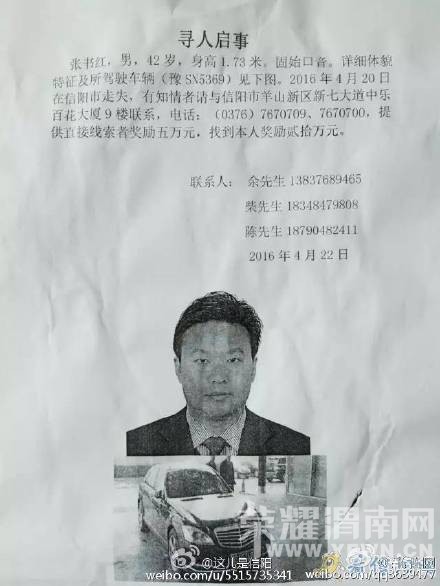 寻人启事
张书红，男，42岁，身高1.73米。固始口音。详细体貌
特征及所驾驶车辆（豫SN5369）见下图。2016年4月20日
在信阳市走失，有知情者请与信阳市羊山新区新七大道中乐
百花大厦9楼联系，电话：（0376）7670709、7670700，提
供直接线索者奖励五万元，找到本人奖励贰拾万元。
联系人：余先生 13837689465
柴先生 18348479808
陈先生 18790482411
2016年4月22日
荣耀渭南网
@这儿是信阳
weibo.com/u/5515735341